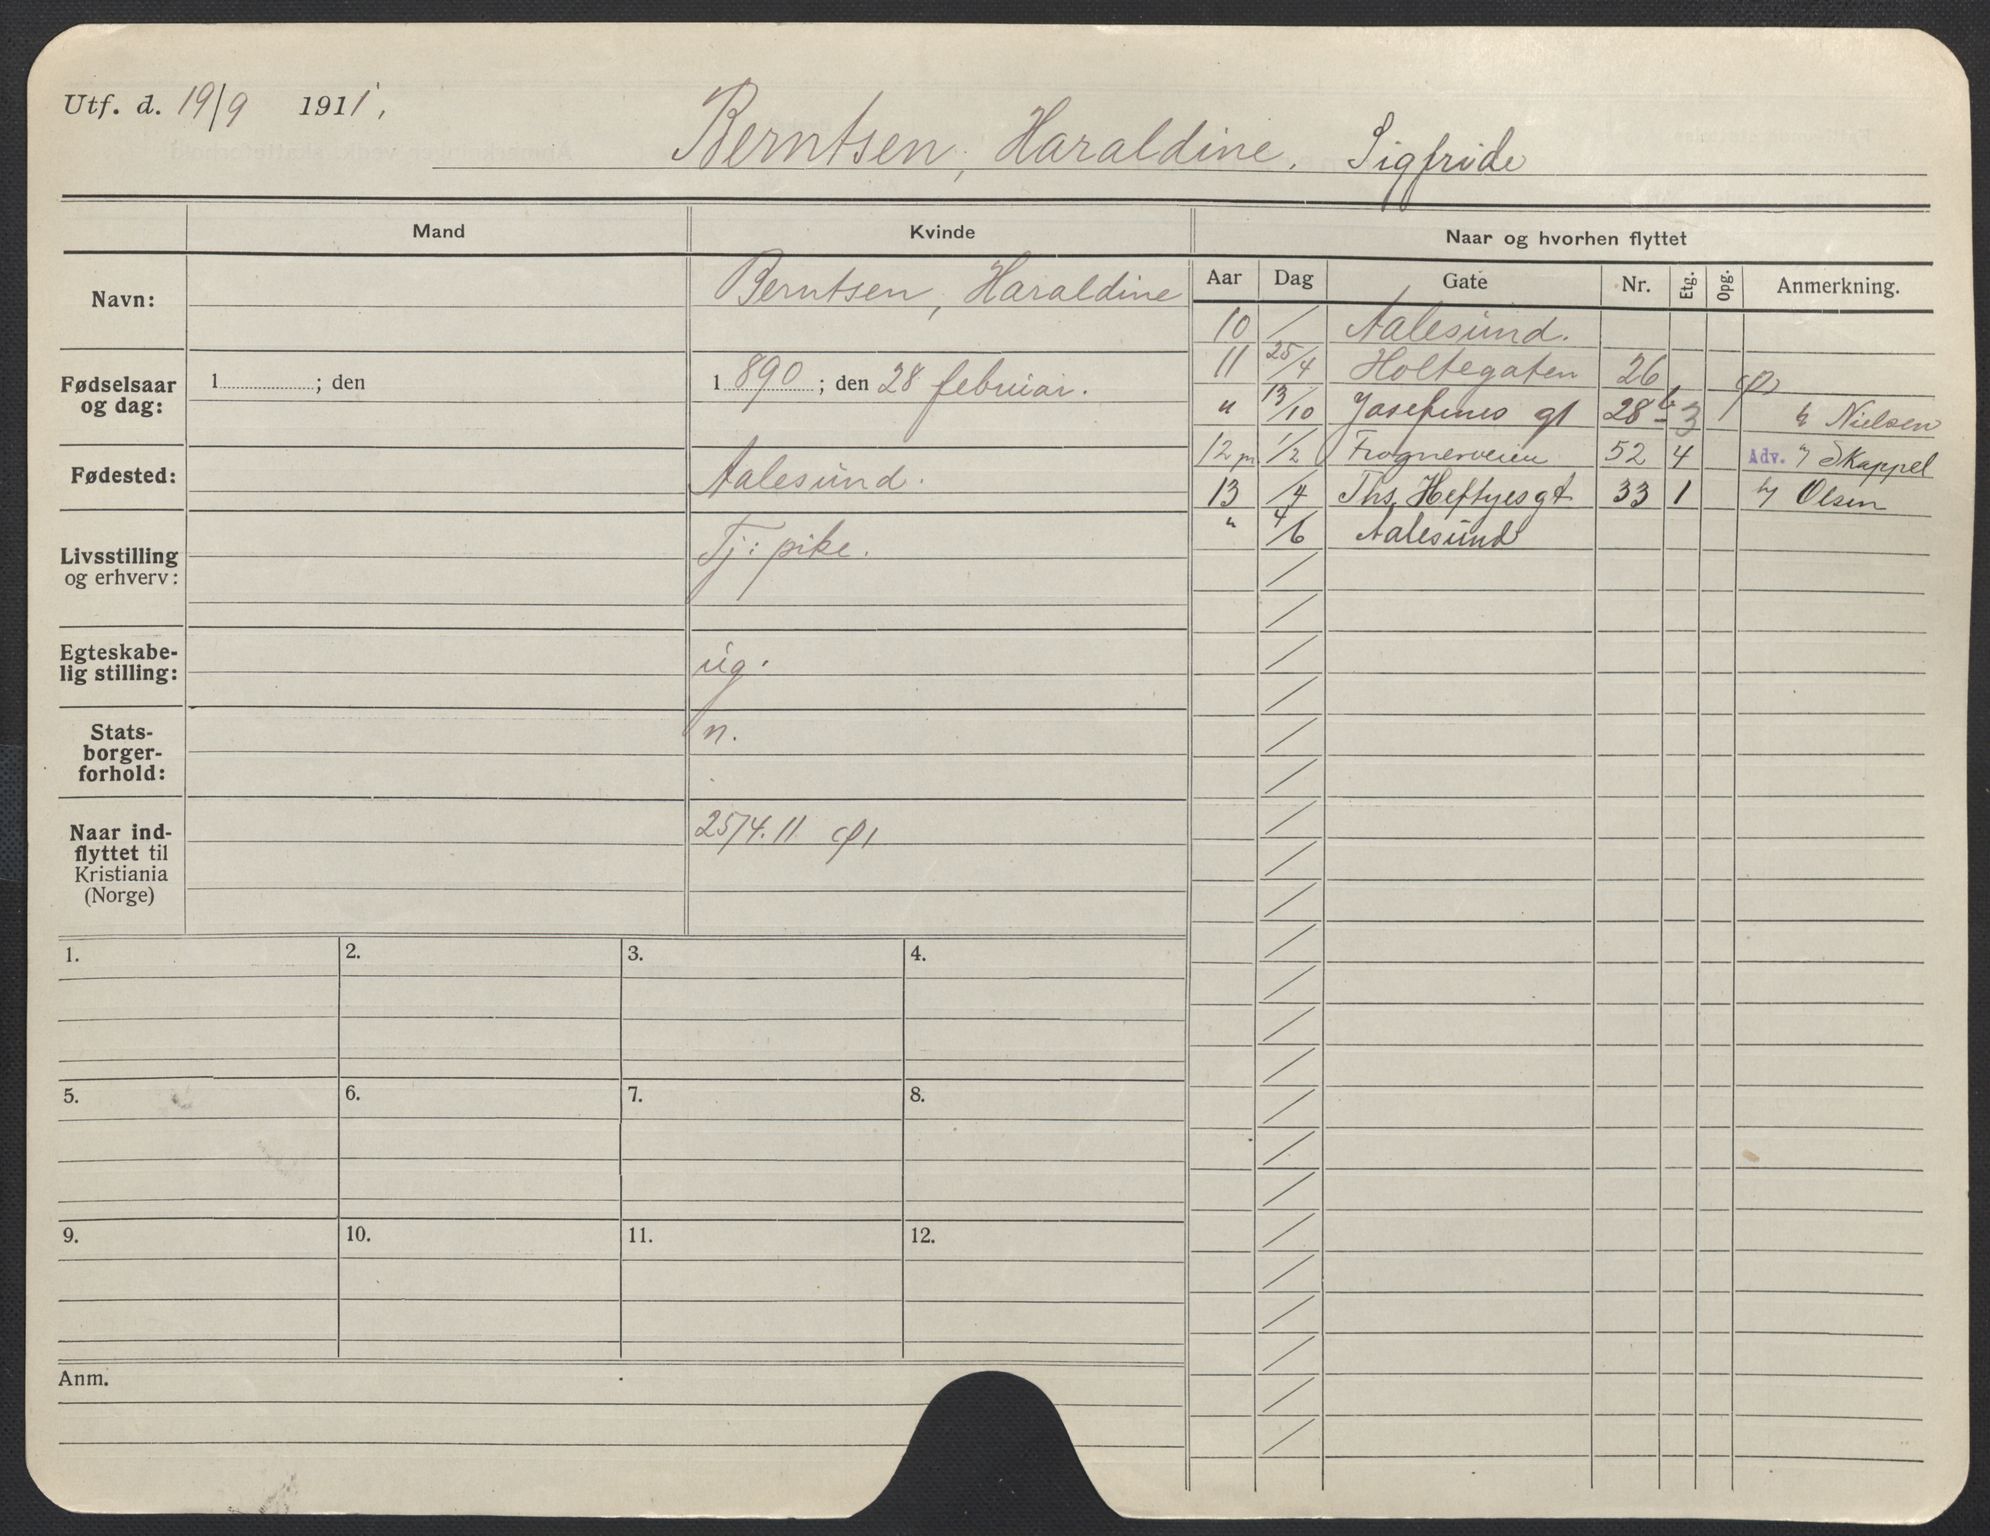 Utf. d. 19/9 1911.
Berntsen, Haraldine. Sigfride
Mand
Kvinde
Naar og hvorhen flyttet
Navn:
Berntsen, Haraldine
Fødselsaar og dag:
1 ; den
1 890 ; den 28 februar.
Fødested:
Aalesund.
Livsstilling og erhverv:
Tj: pike.
Egteskabe-
lig stilling:
ug.
Stats-
borger-
forhold:
n.
Naar ind-
flyttet til
Kristiania
(Norge)
25/4.11
Aar Dag Gate Nr. Etg. Opg. Anmerkning.
10 / Aalesund.
11 25/4 Holtegaten 26
" 13/10 Josefines gt 28 b 3 Nielsen
12 1/2 Frognerveien 52 4 Adv. Skappel
13 /4 Ths. Heftyes gt 33 1 Olsen
" 4/6 Aalesund
1. 2. 3. 4.
5. 6. 7. 8.
9. 10. 11. 12.
Anm.